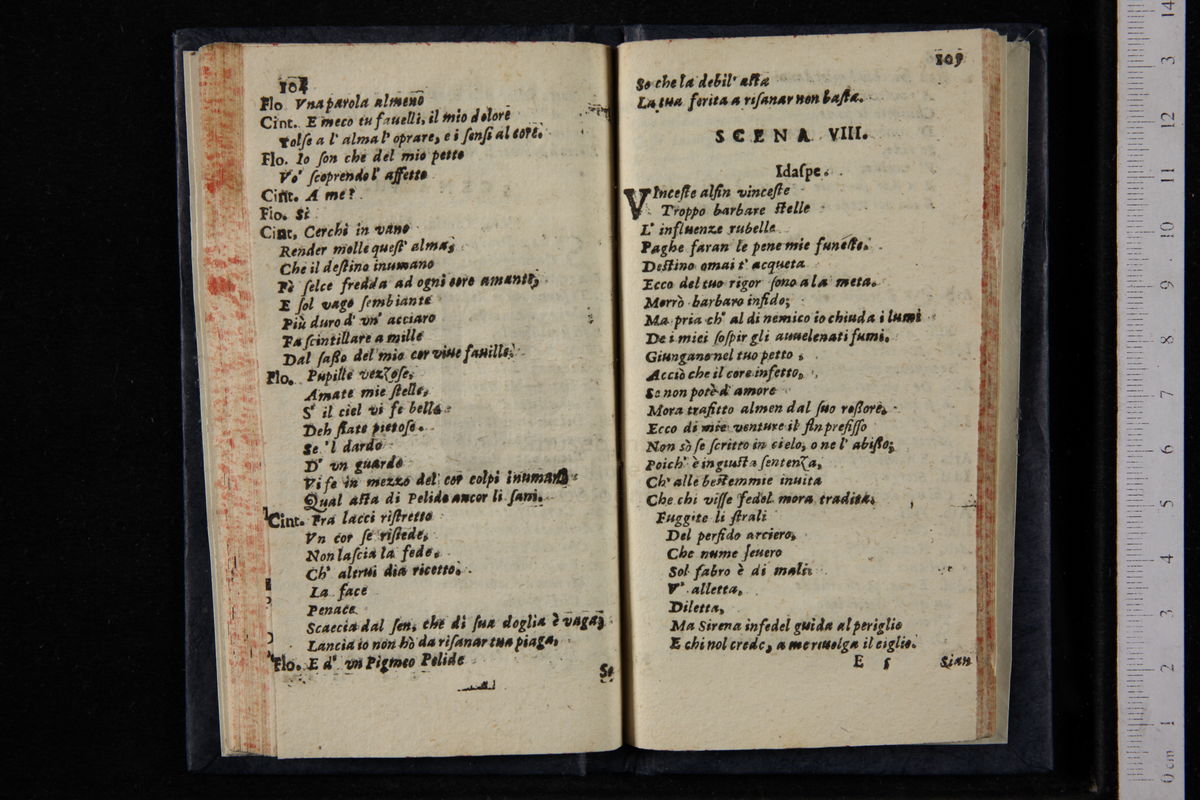 104
Flo Vna parola almeno
Cint. E meco tu fauelli, il mio dolore
Tolse a l' alma l' oprare, e i sensi al core.
Flo. Io son che del mio petto
Vo' scoprendo l' affetto
Cint. A me?
Flo. Sì
Cint. Cerchi in vano
Render molle quest' alma,
Che il destino inumano
Fè selce fredda ad ogni core amante,
E sol vago sembiante
Più duro d' vn' acciaro
Fa scintillare a mille
Dal sasso del mio cor viue fauille.
Flo. Pupille vezzose,
Amate mie stelle,
S' il ciel vi fe belle
Deh siate pietose.
Se 'l dardo
D' vn guardo
Vi fe in mezzo del cor colpi inumani
Qual asta di Pelide ancor li sani.
Cint. Fra lacci ristretto
Vn cor se risiede,
Non lascia la fede,
Ch' altrui dia ricetto.
La face
Penace
Scaccia dal sen, che di sua doglia è vaga,
Lancia io non hò da risanar tua piaga,
Flo. E d' vn Pigmeo Pelide
So
109
So che la debil' asta
La tua ferita a risanar non basta.
SCENA VIII.
Idaspe.
VInceste alfin vinceste
Troppo barbare stelle
L' influenze rubelle
Paghe faran le pene mie funeste.
Destino omai t' acqueta
Ecco del tuo rigor sono a la meta.
Morrò barbaro infido;
Ma pria ch' al di nemico io chiuda i lumi
De i miei sospir gli auuelenati fumi.
Giungano nel tuo petto,
Acciò che il core infetto,
Se non potè d' amore
Mora trafitto almen dal suo rossore.
Ecco di mie venture il fin prefisso
Non sò se scritto in cielo, o ne l' abisso;
Poich' è ingiusta sentenza,
Ch' alle bestemmie inuita
Che chi visse fedel mora tradita.
Fuggite li strali
Del perfido arciero,
Che nume seuero
Sol fabro è di mali:
V' alletta,
Diletta,
Ma Sirena infedel guida al periglio
E chi nol crede, a me riuolga il ciglio.
E 5
Sian